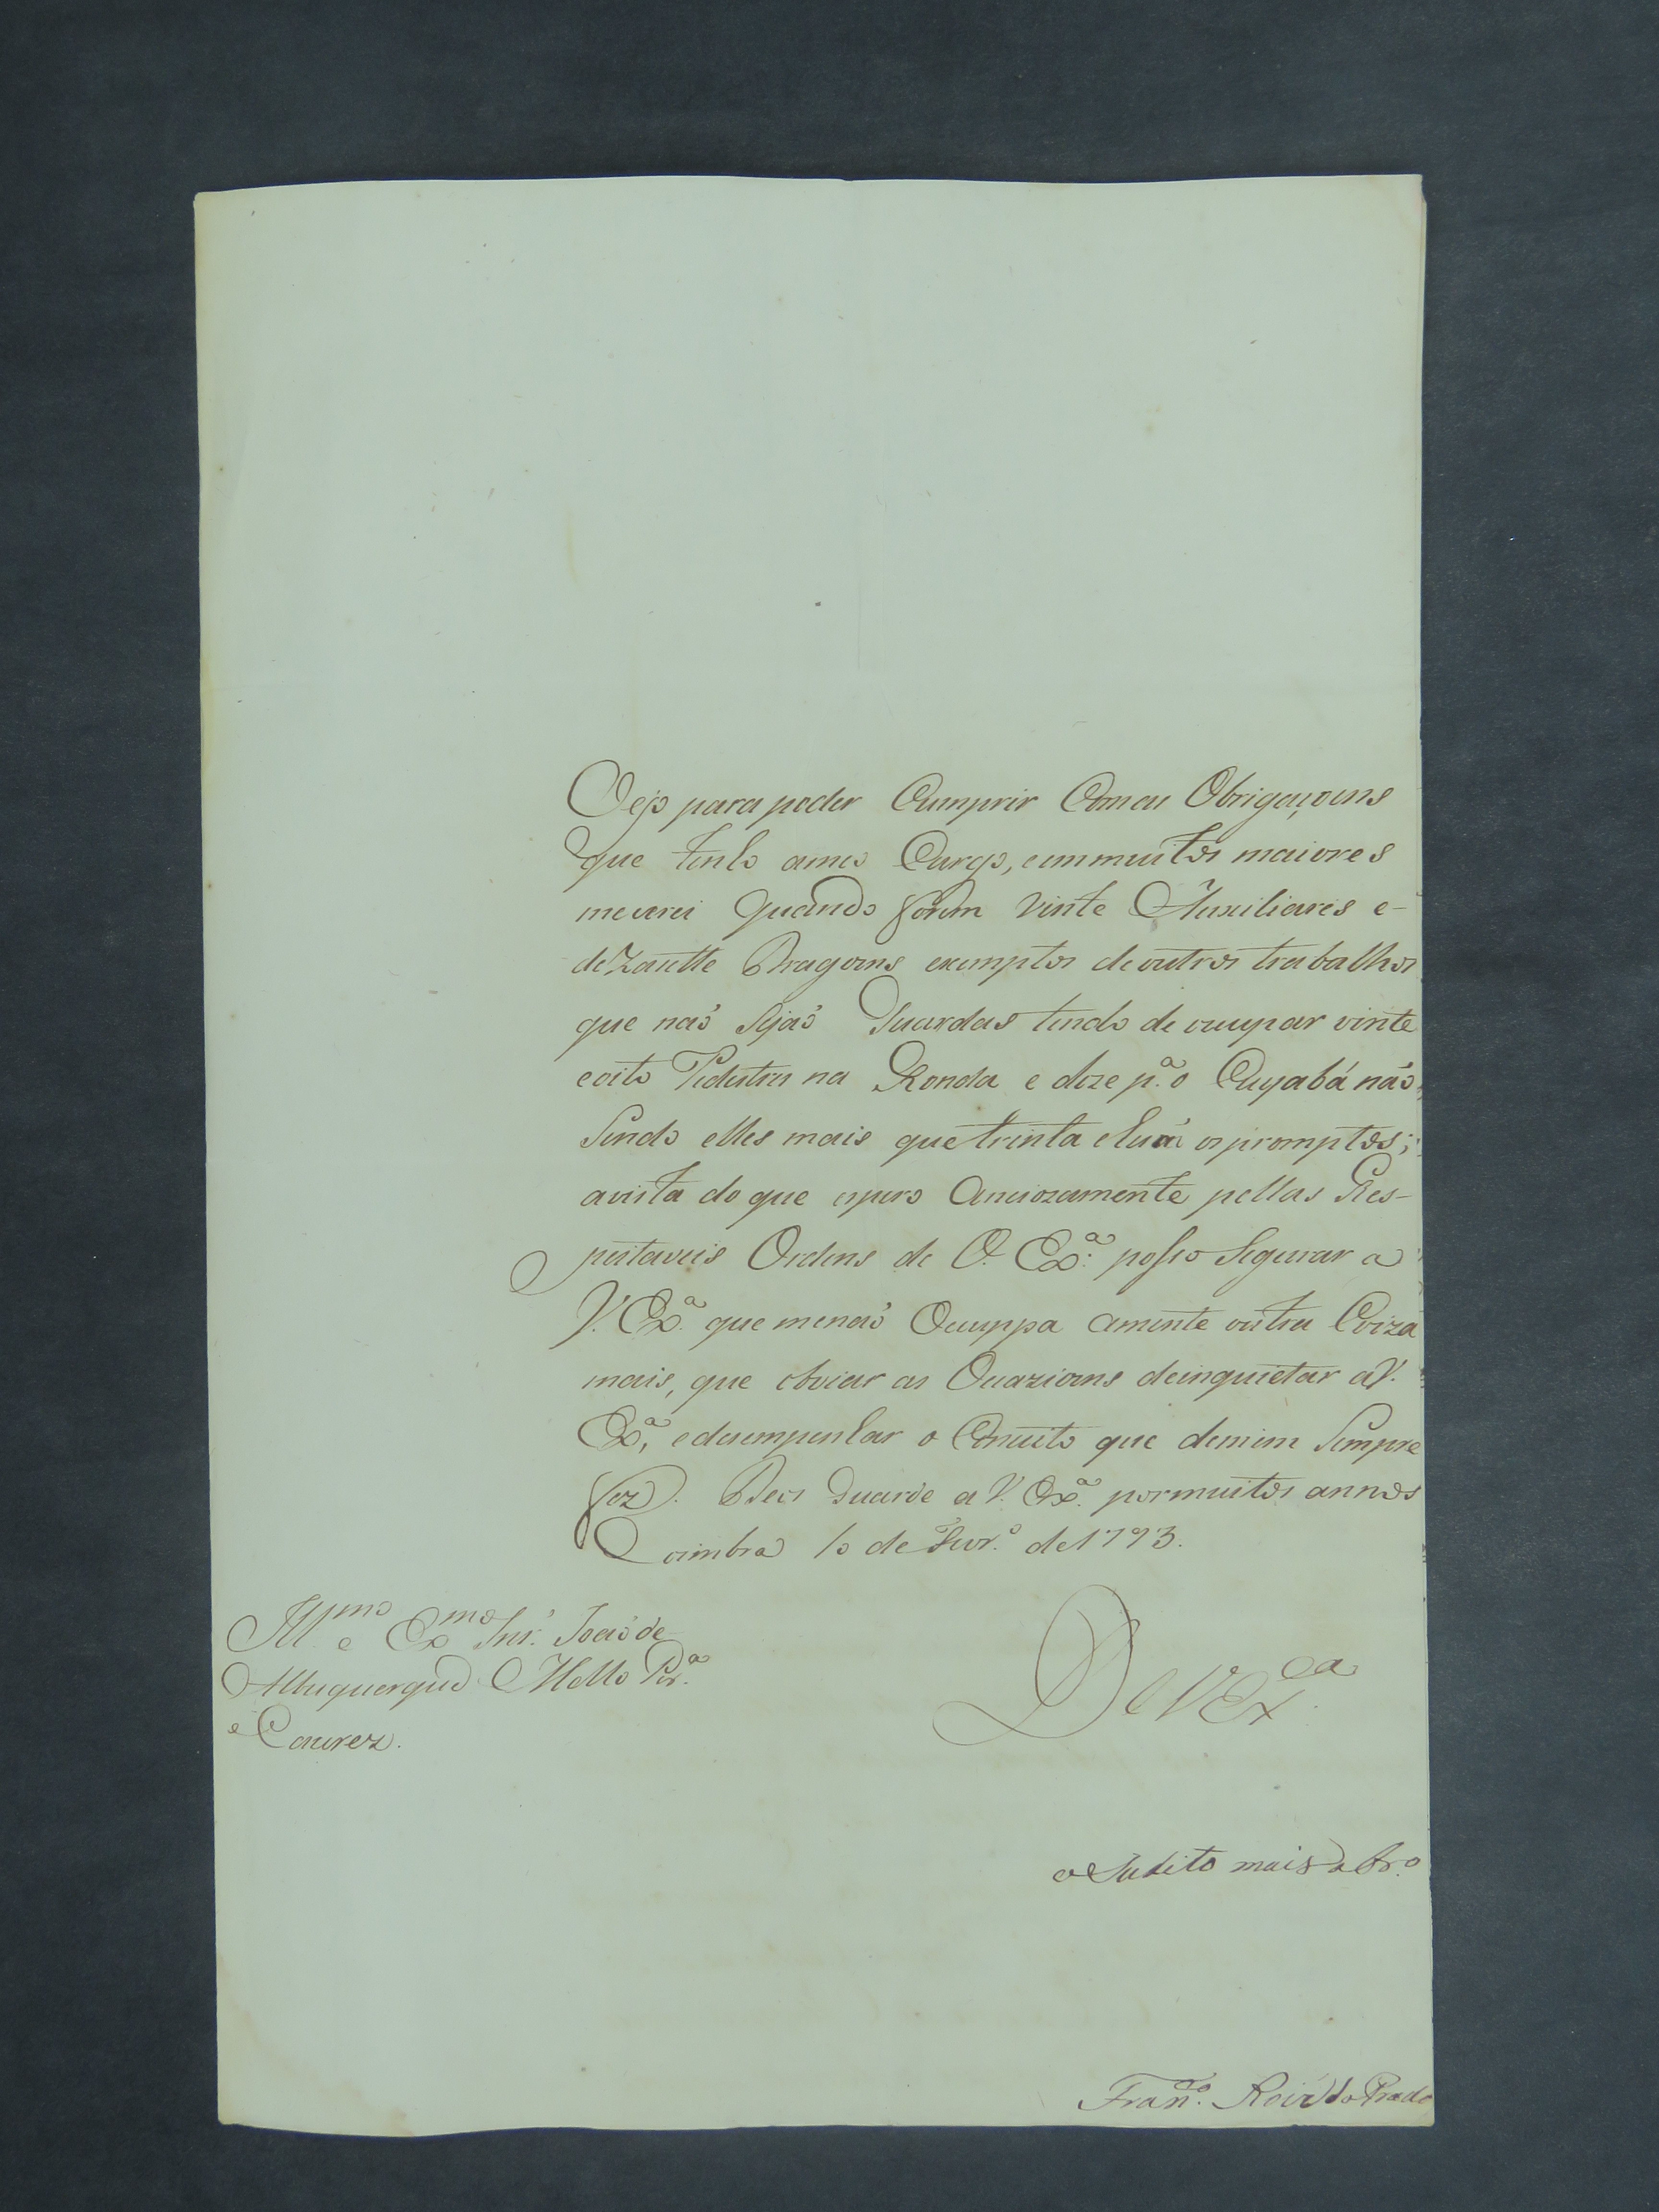 Vejo para poder Cumprir Com as Obrigaçoens
que tenho a meo Cargo, e em muitos maiores
me verei quando forem vinte Auxiliares e
dezasette Dragoens exemptos de outros trabalhos
que naõ sejaõ Guardas tendo de occupar vinte
e oito Pedestres na Ronda e doze p.ª o Cuyabá não
sendo elles mais que trinta e hum os promptos;
a vista do que espero Anciozamente pellas Res-
peitaveis Ordens de V. Ex.ª posso segurar a
V. Ex.ª que me naõ Occuppa a mente outra Coiza
mais, que obviar as Occazioens de inquietar a V.
Ex.ª, e desempenhar o Conceito que de mim Sempre
fez. Deos Guarde a V. Ex.ª por muitos annos
Coimbra 10 de Fevr.º de 1793.
Ill.mo e Ex.mo Snr. Joaõ de
Albuquerque de Mello Per.ª
e Caceres.
De V Ex.ca
o Subdito mais obr.º
Fran.co Roiz do Prado